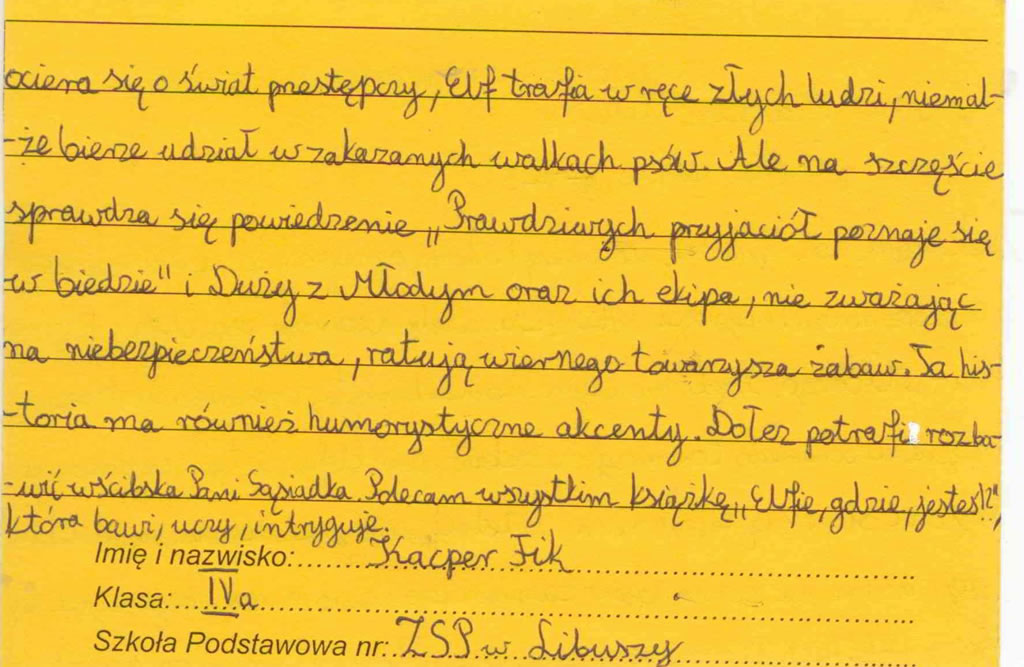 ociera się o świat przestępczy, Elf trafia w ręce złych ludzi, niemal-
-że bierze udział w zakazanych walkach psów. Ale na szczęście
sprawdza się powiedzenie „Prawdziwych przyjaciół poznaje się
w biedzie" i Duży z Młodym oraz ich ekipa, nie zważając
na niebezpieczeństwa, ratują wiernego towarzysza zabaw. Ta his-
-toria ma również humorystyczne akcenty. Do łez potrafi rozba-
-wić wścibska Pani Sąsiadka. Polecam wszystkim książkę „Elfie, gdzie, jesteś!?",
która bawi, uczy, intryguje.
Imię i nazwisko: Kacper Fik
Klasa: IVa
Szkoła Podstawowa nr: ZSP w Libuszy